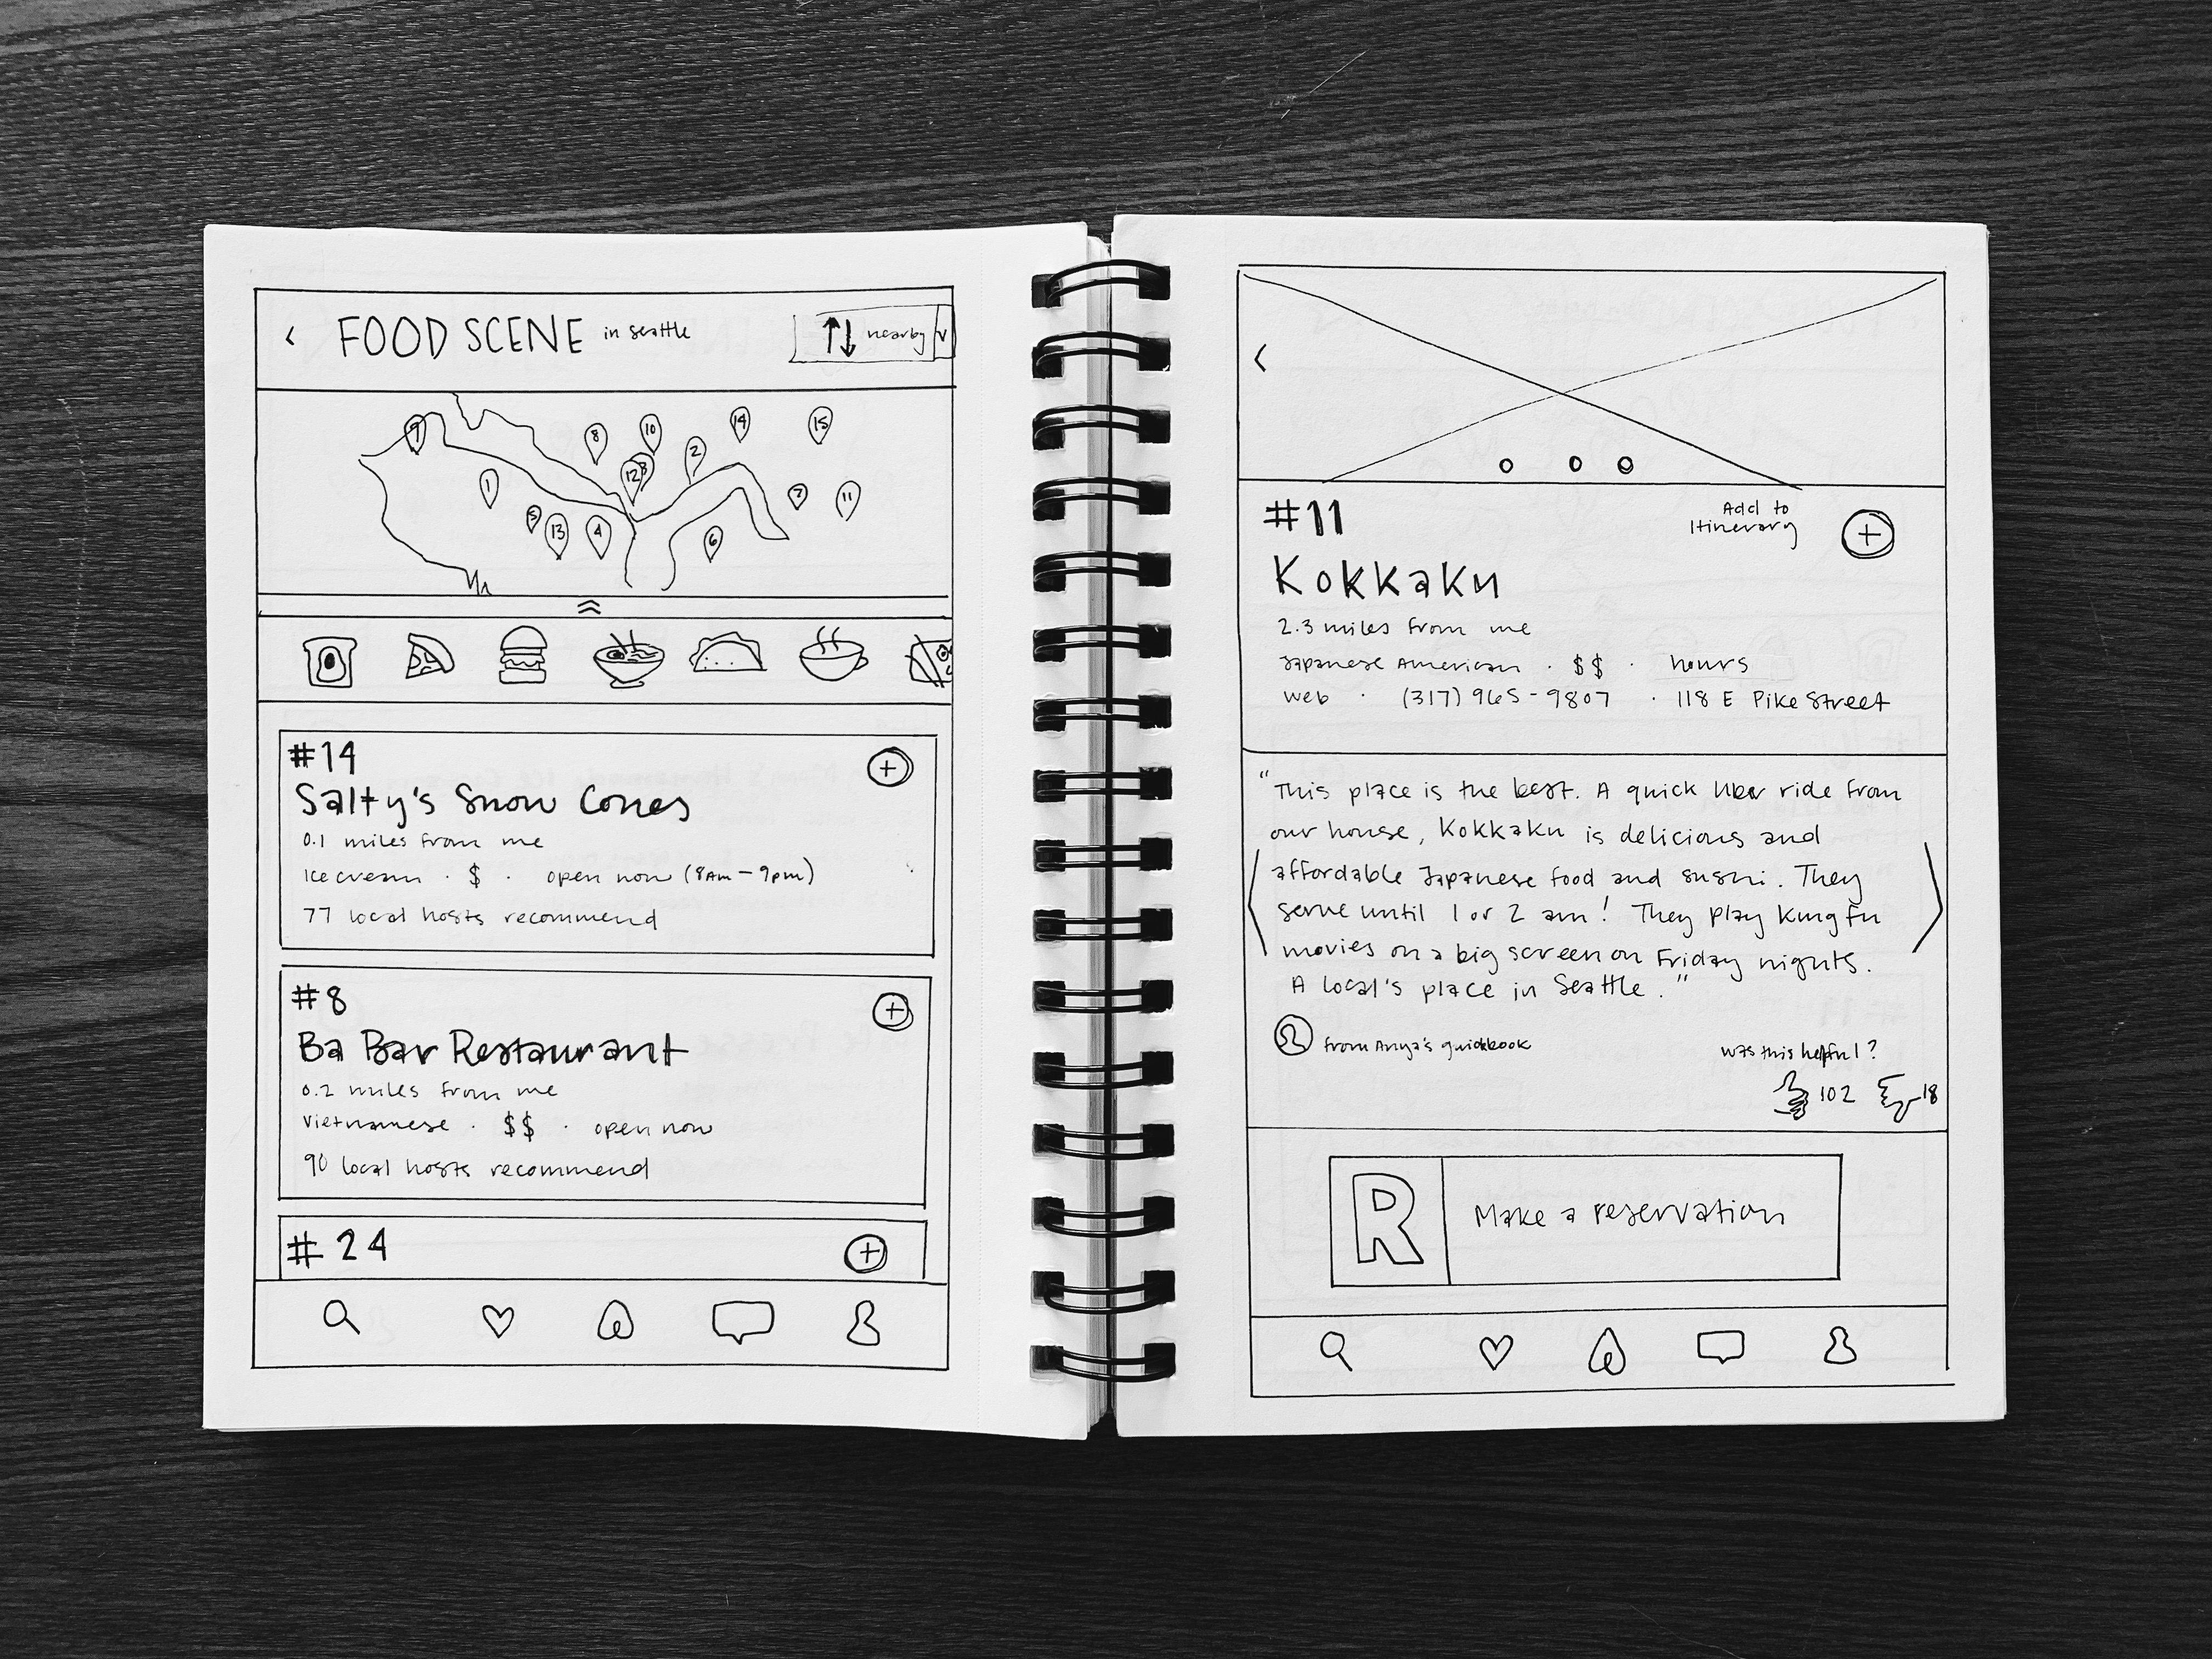 < FOOD SCENE in seattle ↑↓ nearby v
9 8 10 14 15
12 3 2
1 7 11
5 13 4 6
#14
Salty's Snow Cones
0.1 miles from me
Ice cream · $ · open now (8AM - 9pm)
77 local hosts recommend
#8
Ba Bar Restaurant
0.2 miles from me
Vietnamese · $$ · open now
90 local hosts recommend
#24
#11
Add to
Itinerary
Kokkaku
2.3 miles from me
Japanese American · $$ · hours
web · (317) 965-9807 · 118 E Pike Street
"This place is the best. A quick Uber ride from
our house, Kokkaku is delicious and
affordable Japanese food and sushi. They
serve until 1 or 2 am! They play Kung fu
movies on a big screen on Friday nights.
A local's place in Seattle."
from Anya's guidebook
was this helpful?
102 18
R Make a reservation